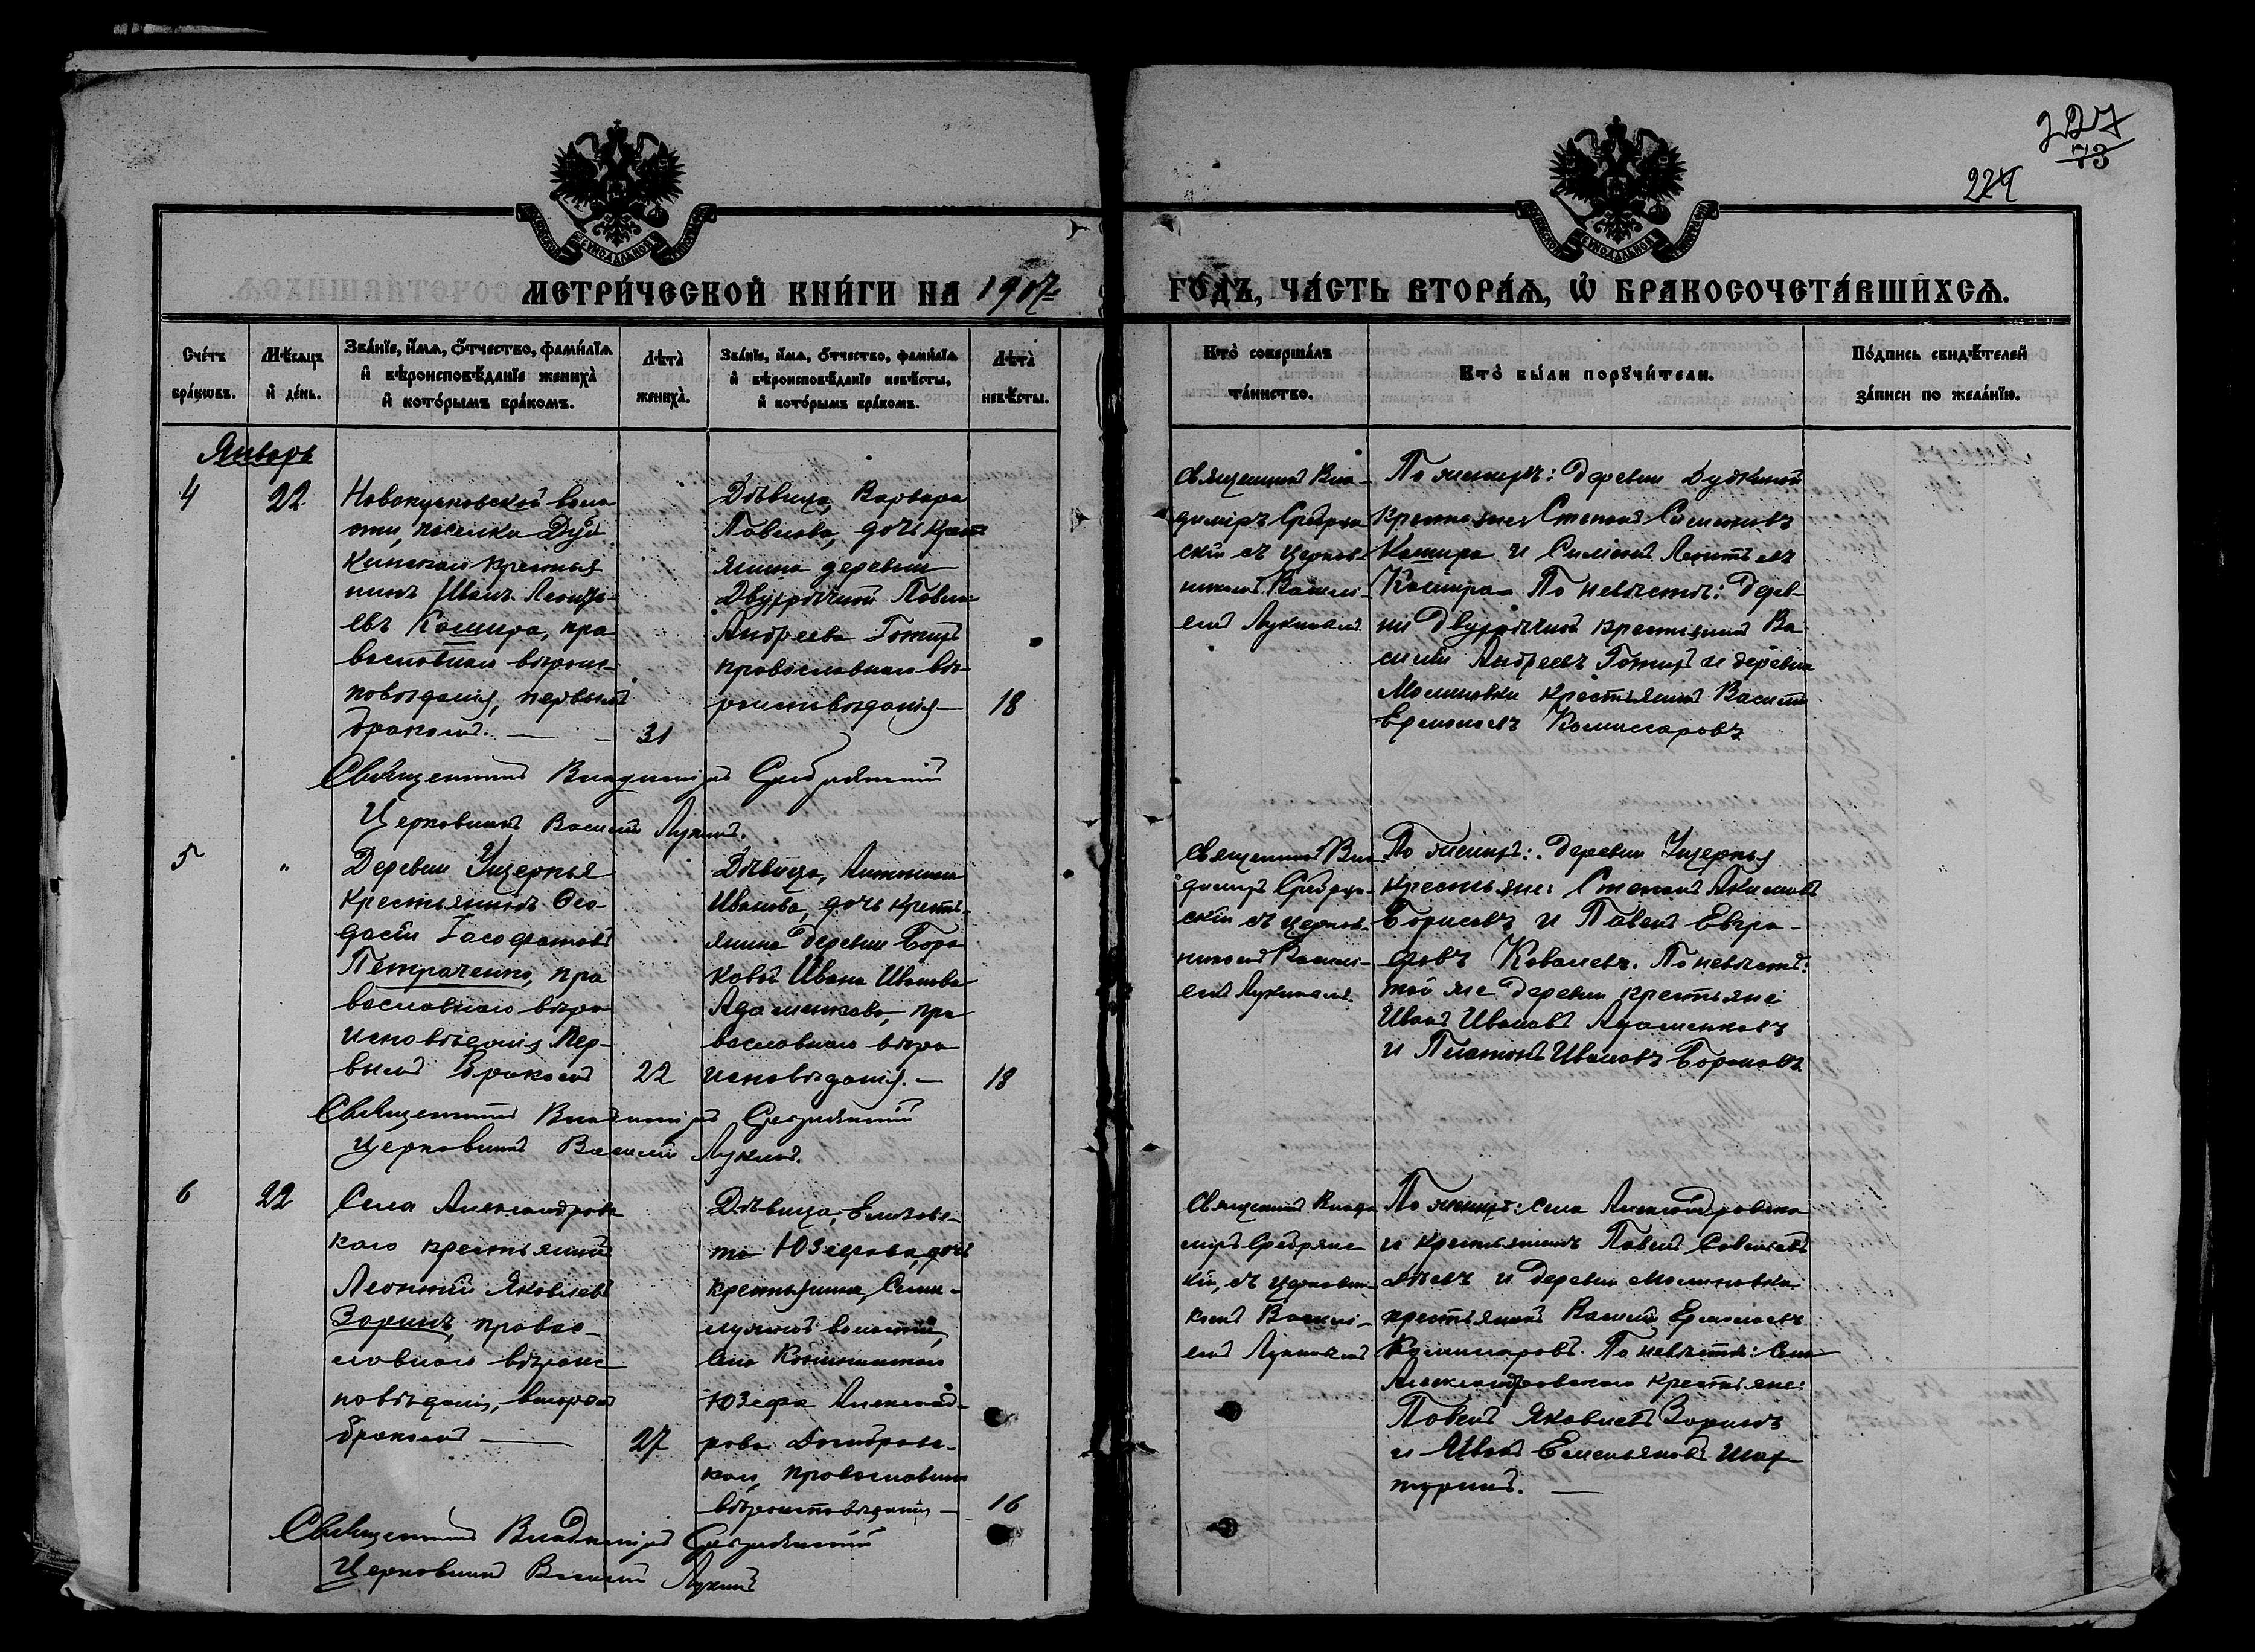 227
73
224
МЕТРИ́ЧЕСКОЙ КНИ́ГИ НА 1917 ГО́ДЪ, ЧА́СТЬ ВТОРА́Ѧ, Ѽ БРАКОСОЧЕТА́ВШИХСѦ.
Сче́тъ бра́кѡвъ.
Мѣ́сяцъ и҆ де́нь.
Зва́нїе, и҆́мѧ, ѻ҆́тчество, фами́лїѧ
и҆ вѣроисповѣ́данїе жениха̀
и҆ кото́рымъ бра́комъ.
Лѣта̀ жениха̀.
Зва́нїе, и҆́мѧ, ѻ҆́тчество, фами́лїѧ
и҆ вѣроисповѣ́данїе невѣ́сты,
и҆ кото́рымъ бра́комъ.
Лѣта̀ невѣ́сты.
Кто̀ соверша́лъ та́инство.
Кто̀ бы́ли порꙋчи́тели.
По́дпись свидѣ́телей за́писи по жела́нїю.
Январь
4
22
Новокусковской воло-
сти, поселка Дуб
кинскаго крестья
нинъ Иванъ Леонть-
евъ Кошира, пра-
вославнаго вѣроис-
повѣданія, первымъ
бракомъ.
31
Дѣвица, Варвара
Павлова, дочь кресть
янина деревни
Двурѣчной Павла
Андреева
православнаго вѣ-
роисповѣданія
18
Священникъ Вла-
диміръ Сребрян
скій съ церков-
никомъ Василі-
емъ Лукинымъ
По женихѣ: деревни
крестьяне Степанъ
Кошира и Леонтьевъ
Кошира. По невѣстѣ: дерев-
ни Двурѣчной крестьянинъ Ва
силій Андреевъ и деревни
Малиновки крестьянинъ Василій
Ермолаевъ Комиссаровъ
Священникъ Владиміръ Сребрянскій
Церковникъ Василій Лукинъ.
5
"
Деревни Ущерпья
крестьянинъ Ѳео-
досій Іасафатовъ
Петраченко, пра
вославнаго вѣро
исповѣданія пер-
вымъ бракомъ
22
Дѣвица, Антонина
Иванова, дочь кресть-
янина деревни Боро
ковой Ивана Иванова
Адаменкова, пра
вославнаго вѣро
исповѣданія.
18
Священникъ Вла
диміръ Сребрян-
скій съ церков-
никомъ Василі-
емъ Лукинымъ
По женихѣ: деревни Ущерпья
крестьяне: Степанъ Акимовъ
Борисовъ и Павелъ Евгра-
фовъ Ковалевъ. По невѣстѣ:
той же деревни крестьяне
Иванъ Ивановъ Адаменковъ
и Платонъ Ивановъ
Священникъ Владиміръ Сребрянскій
Церковникъ Василій Лукинъ.
6
22
Села Александровс
каго крестьянинъ
Леонтій Яковлевъ
Зоринъ, правос-
лавнаго вѣроис
повѣданія, вторымъ
бракомъ
27
Дѣвица, Елизаве-
та Юзефова, дочь
крестьянина, Семи-
лужной волости,
села
Юзефа Александ-
рова Домбровс-
каго, православнаго
вѣроисповѣданія
16
Священникъ Влади
міръ Сребрянс
кій, съ церковни-
комъ Василі-
емъ Лукинымъ
По женихѣ: села Александровска
го крестьянинъ Павелъ
и деревни Малиновки
крестьянинъ Василій Ермолаевъ
Комиссаровъ. По невѣстѣ: села
Александровскаго крестьяне:
Павелъ Яковлевъ Зоринъ
и Иванъ Емельяновъ Шах-
туринъ.
Священникъ Владиміръ Сребрянскій
Церковникъ Василій Лукинъ